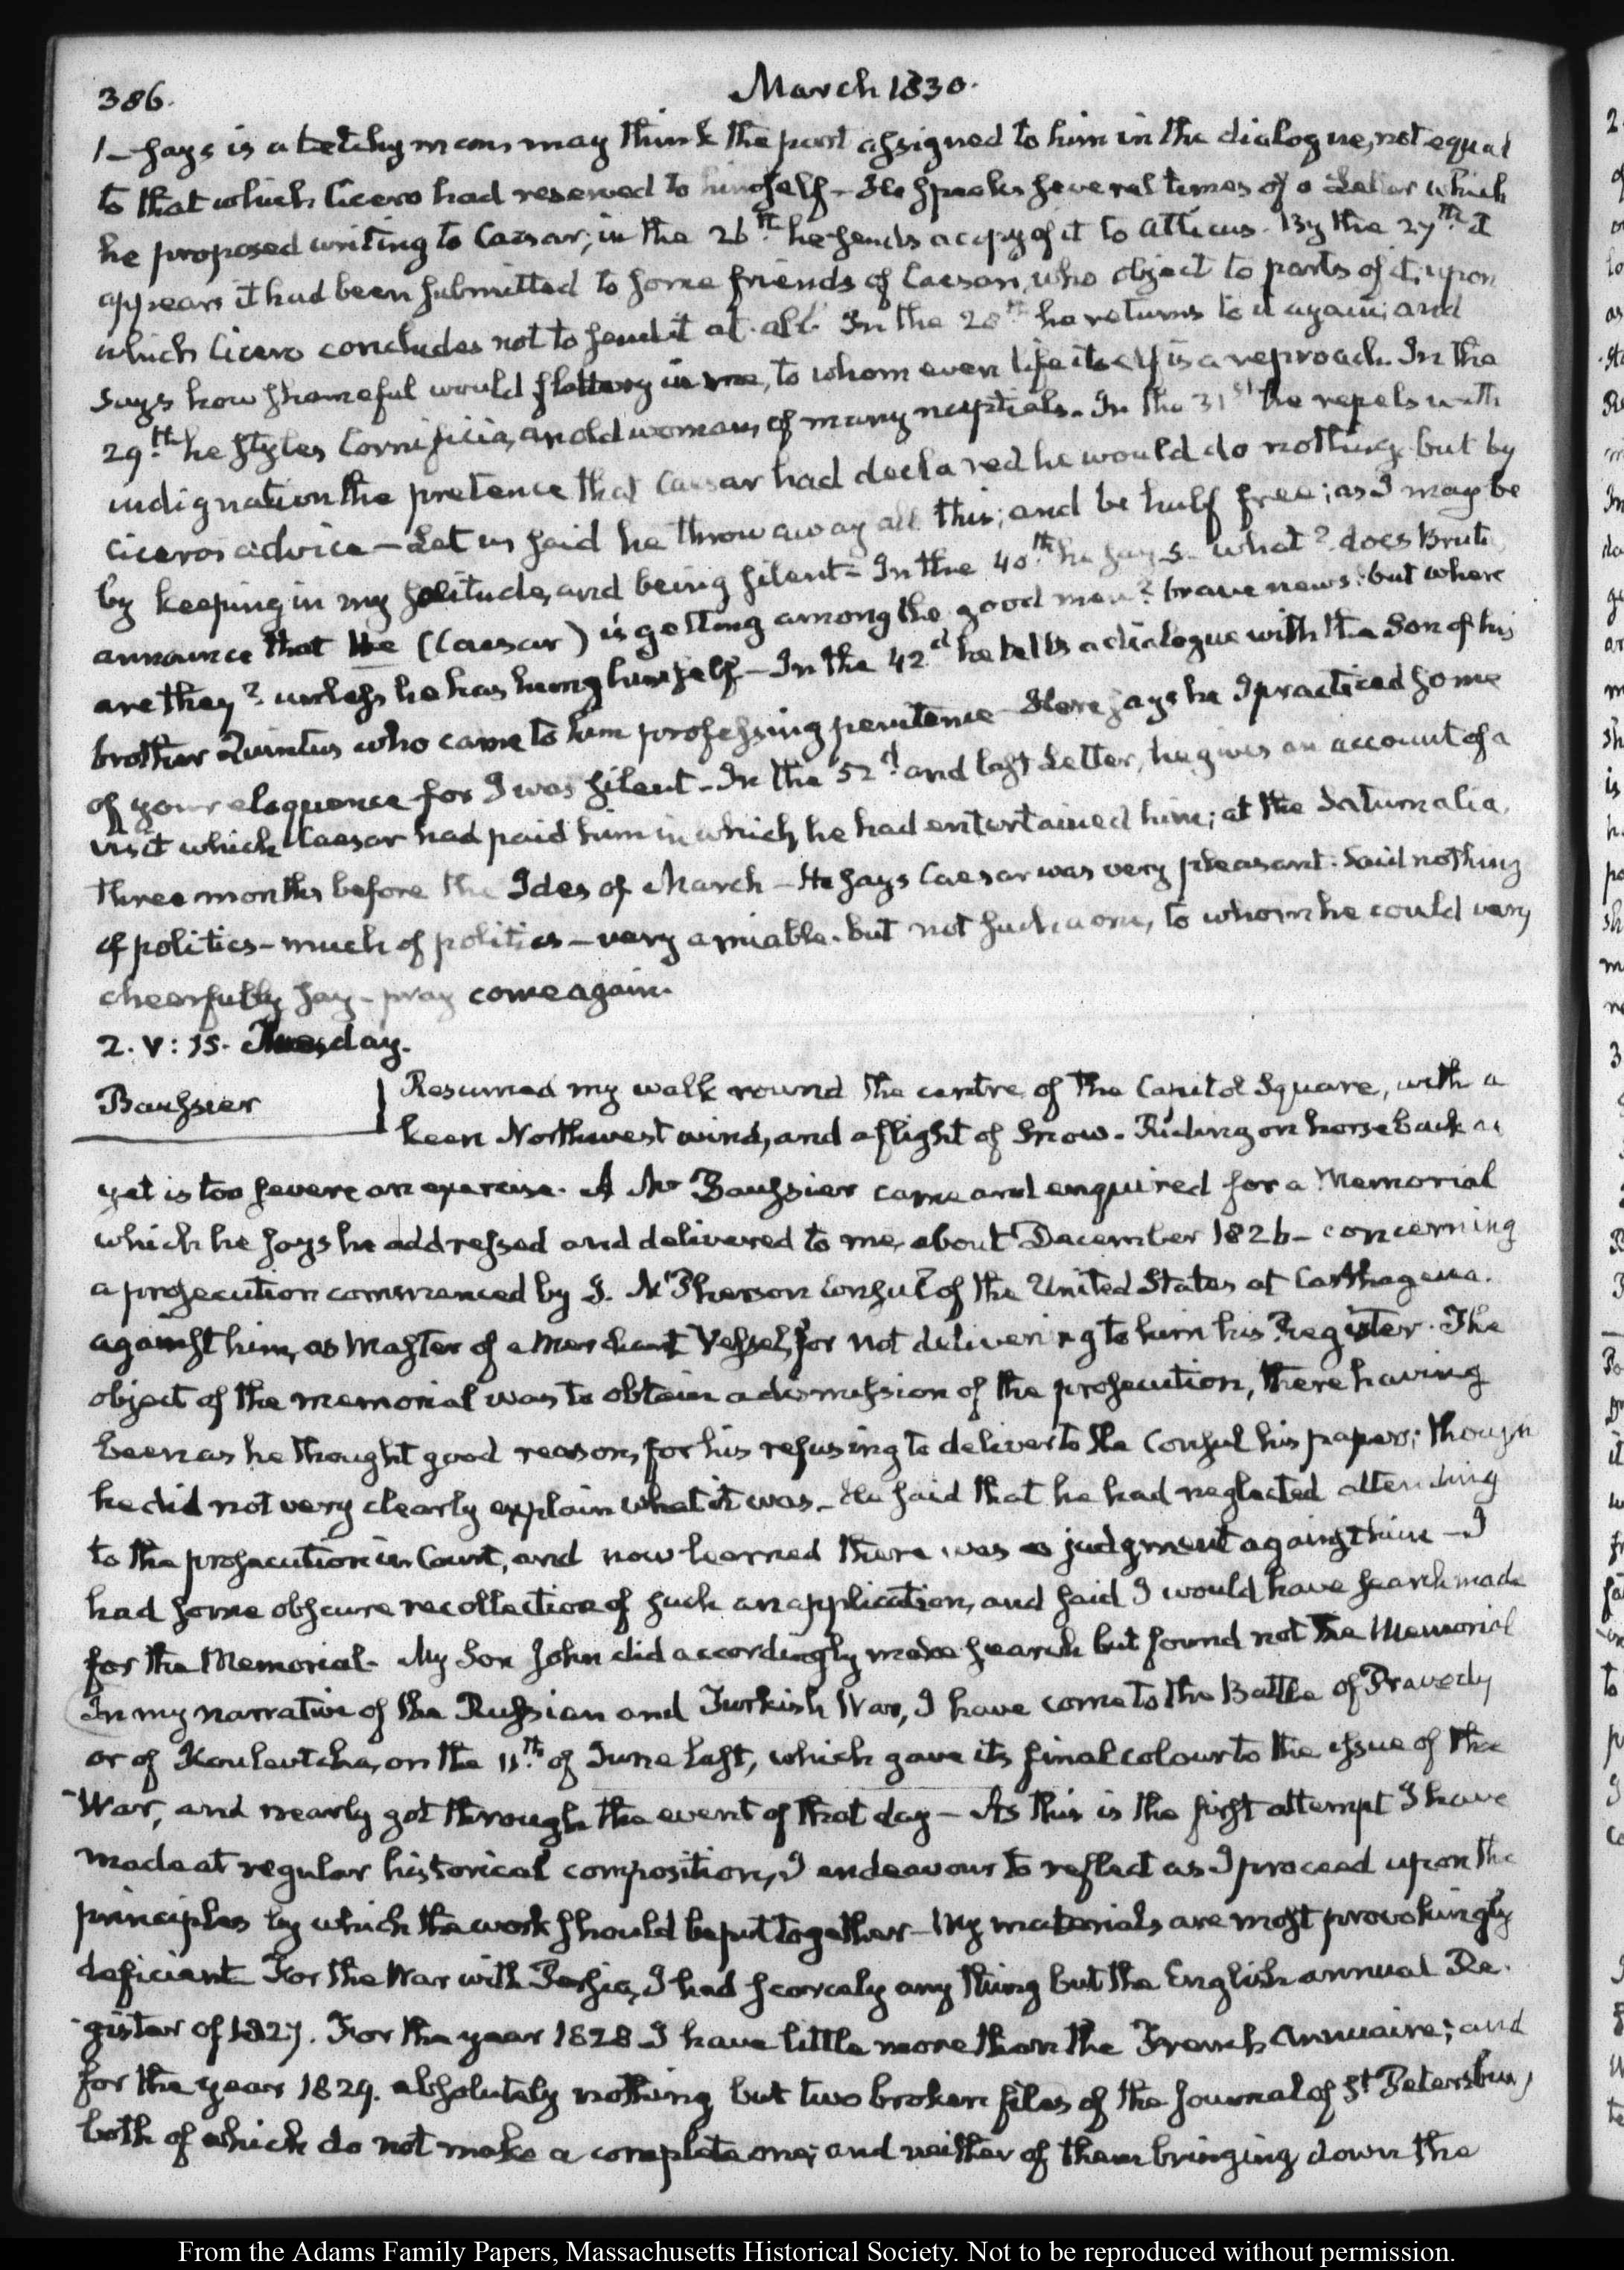 386.
March 1830.
1— says is a tetchy man, may think the part assigned to him in the dialogue, not equal
to that which Cicero had reserved to himself— He speaks several times of a Letter which
he proposed writing to Caesar; in the 26th he sends a copy of it to Atticus. By the 27th it
appears it had been submitted to some friends of Caesar, who object to parts of it; upon
which Cicero concludes not to send it at all. In the 28th he returns to it again; and
says how shameful would flattery in me, to whom even life itself is a reproach. In the
29th he styles Cornificia, an old woman, of many nuptials. In the 31st he repels with
indignation the pretence that Caesar had declared he would do nothing but by
Cicero's advice— Let us said he throw away all this; and be half free; as I may be
by keeping in my solitude, and being silent— In the 40th he says— what? does Brutus
announce that he (Caesar) is getting among the good men? brave news! but where
are they? unless he has hung himself— In the 42d he tells a dialogue with the Son of his
brother Quintus who came to him professing penitence— Here says he I practiced some
of your eloquence for I was silent— In the 52d and last Letter, he gives an account of a
visit which Caesar had paid him in which he had entertained him; at the Saturnalia,
three months before the Ides of March— He says Caesar was very pleasant. Said nothing
of politics— much of politics— very amiable. but not such a one, to whom he could very
cheerfully say— pray come again.
2. V: 15. Tuesday.
Baussier
Resumed my walk round the centre of the Capitol Square, with a
keen Northwest wind, and a flight of Snow. Riding on horseback as
yet is too severe an exercise. A Mr Baussier came and enquired for a Memorial
which he says he addressed and delivered to me, about December 1826— concerning
a prosecution commenced by J. McPherson Consul of the United States at Carthagena.
against him, as Master of a Merchant Vessel, for not delivering to him his Register. The
object of the memorial was to obtain a dismission of the prosecution, there having
been as he thought good reason, for his refusing to deliver to the Consul his papers; though
he did not very clearly explain what it was— He said that he had neglected attending
to the prosecution in Court, and now learned there was a judgment against him— I
had some obscure recollection of such an application, and said I would have search made
for the Memorial— My Son John did accordingly make search but found not the Memorial
In my narrative of the Russian and Turkish War, I have come to the Battle of Pravady
or of Koulevtcha, on the 11th of June last, which gave its final colour to the issue of the
War, and nearly got through the event of that day— As this is the first attempt I have
made at regular historical composition, I endeavour to reflect as I proceed upon the
principles by which the work should be put together— My materials are most provokingly
deficient— For the War with Persia, I had scarcely any thing but the English annual Re-
gister of 1827. For the year 1828 I have little more than the French Annuaire; and
for the year 1829. absolutely nothing but two broken files of the Journal of St Petersburg
both of which do not make a complete one; and neither of them bringing down the
From the Adams Family Papers, Massachusetts Historical Society. Not to be reproduced without permission.